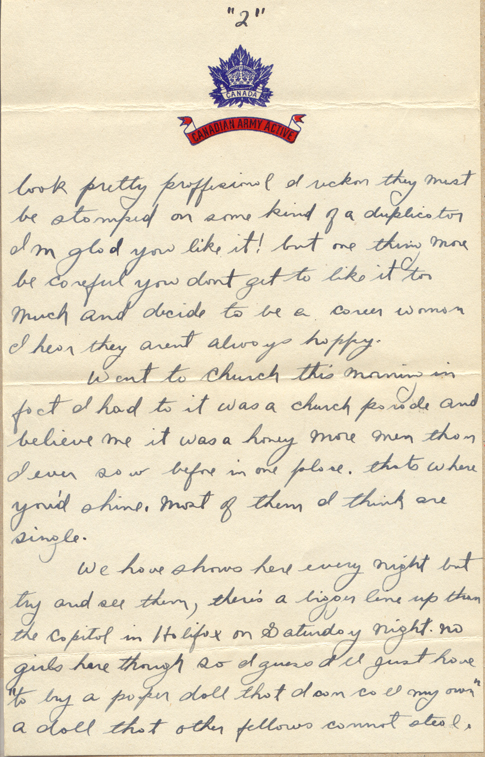 "2"
CANADA
CANADIAN ARMY ACTIVE
look pretty proffisional I reckon they must
be stomped on some kind of a duplicator
I'm glad you like it! but one thing more
be careful you dont get to like it to
much and decide to be a career woman
I hear they arent always happy.
Went to church this morning in
fact I had to it was a church parade and
believe me it was a honey more men than
I ever saw before in one place. thats where
you'd shine. most of them I think are
single.
We have shows here every night but
try and see them, there's a bigger line up than
the Capitol in Halifax on Saturday night. no
girls here though so I guess I'll just have
"to buy a paper doll that I can call my own"
a doll that other fellows cannot steal.